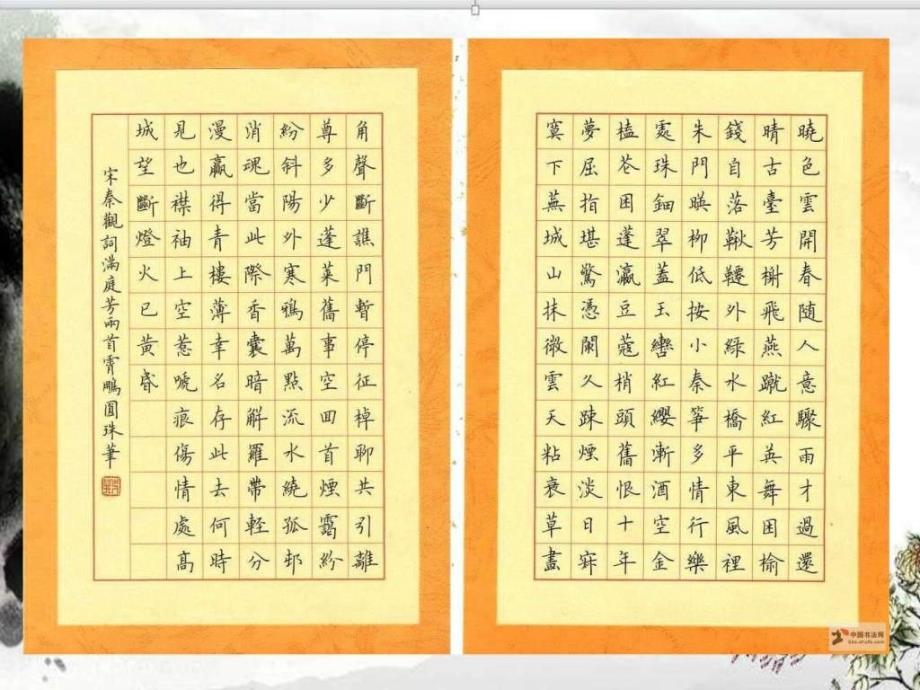 曉色雲開春隨人意驟雨才過還
晴古臺芳榭飛燕蹴紅英舞困榆
錢自落鞦韆外綠水橋平東風裡
朱門暎柳低按小秦箏多情行樂
處珠鈿翠蓋玉轡紅纓漸酒空金
榼芲困蓬瀛豆蔻梢頭舊恨十年
夢屈指堪驚憑闌久踈煙淡日寂
寞下蕪城山抹微雲天粘衰草畫
角聲斷譙門暫停征棹聊共引離
尊多少蓬萊舊事空回首煙靄紛
紛斜陽外寒鴉萬點流水繞孤邨
消魂當此際香囊暗解羅帶輕分
漫贏得青樓薄幸名存此去何時
見也襟袖上空惹唬痕傷情處高
城望斷燈火已黃昏
宋秦觀詞滿庭芳兩首霄鵬圓珠筆
中国书法网